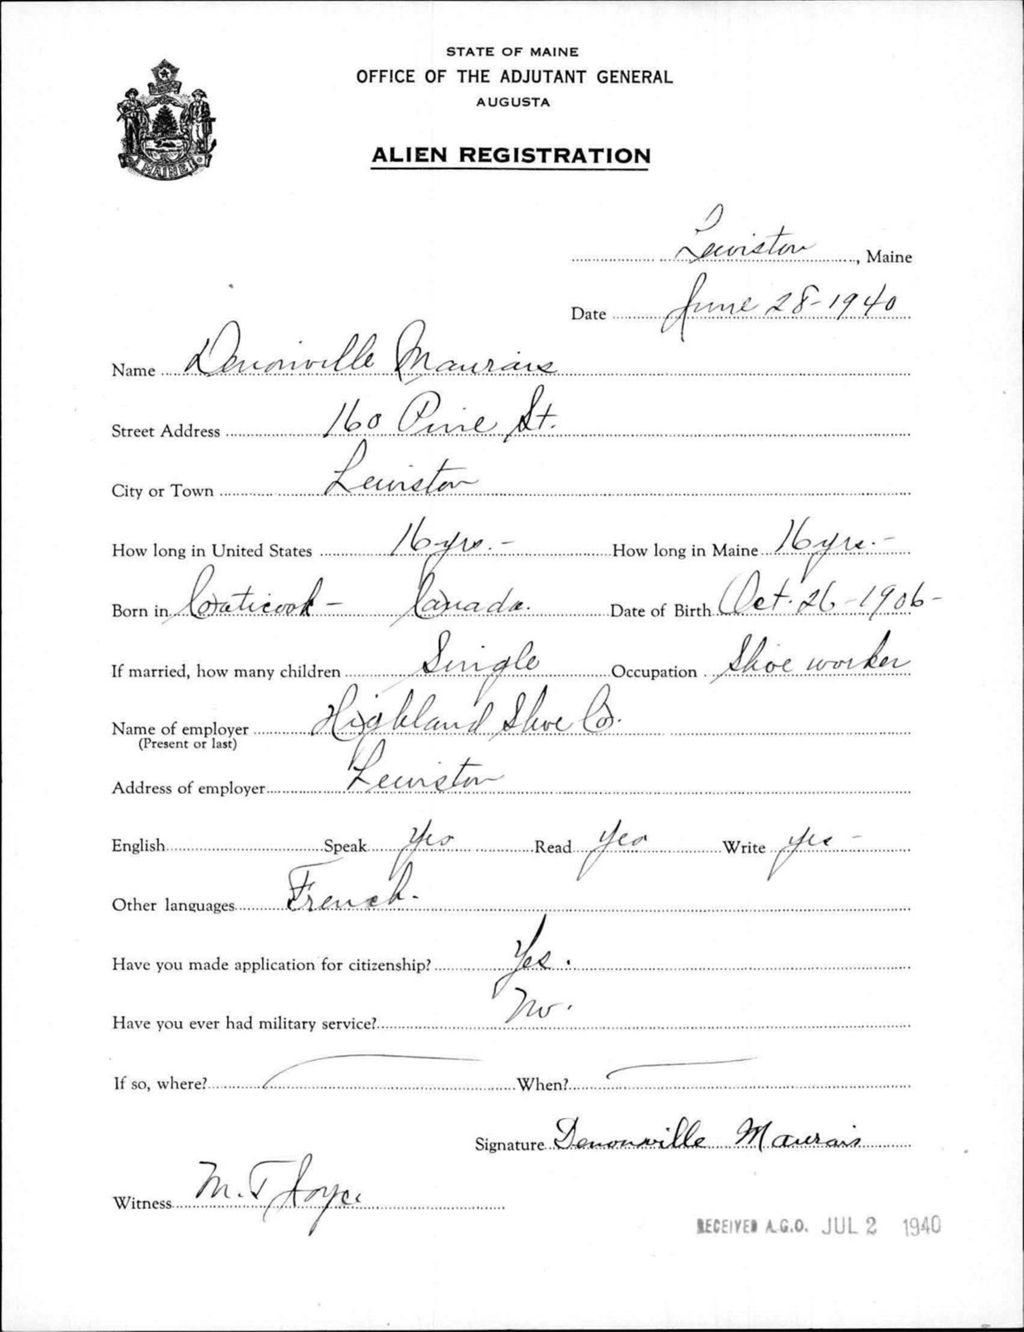 STATE OF MAINE
OFFICE OF THE ADJUTANT GENERAL
AUGUSTA
ALIEN REGISTRATION
MAINE
Lewiston, Maine
Date June 28-1940
Name Denonville Maurais
Street Address 160 Pine St.
City or Town Lewiston
How long in United States 16 yrs.- How long in Maine 16 yrs.-
Born in Coaticook - Canada. Date of Birth Oct. 26-1906-
If married, how many children Single Occupation Shoe worker
Name of employer Highland Shoe Co.
(Present or last)
Address of employer Lewiston
English Speak Yes Read Yes Write yes -
Other languages French.
Have you made application for citizenship? Yes.
Have you ever had military service? No.
If so, where? When?
Signature Denonville Maurais
Witness M. T. Joyce
RECEIVED A.G.O. JUL 2 1940